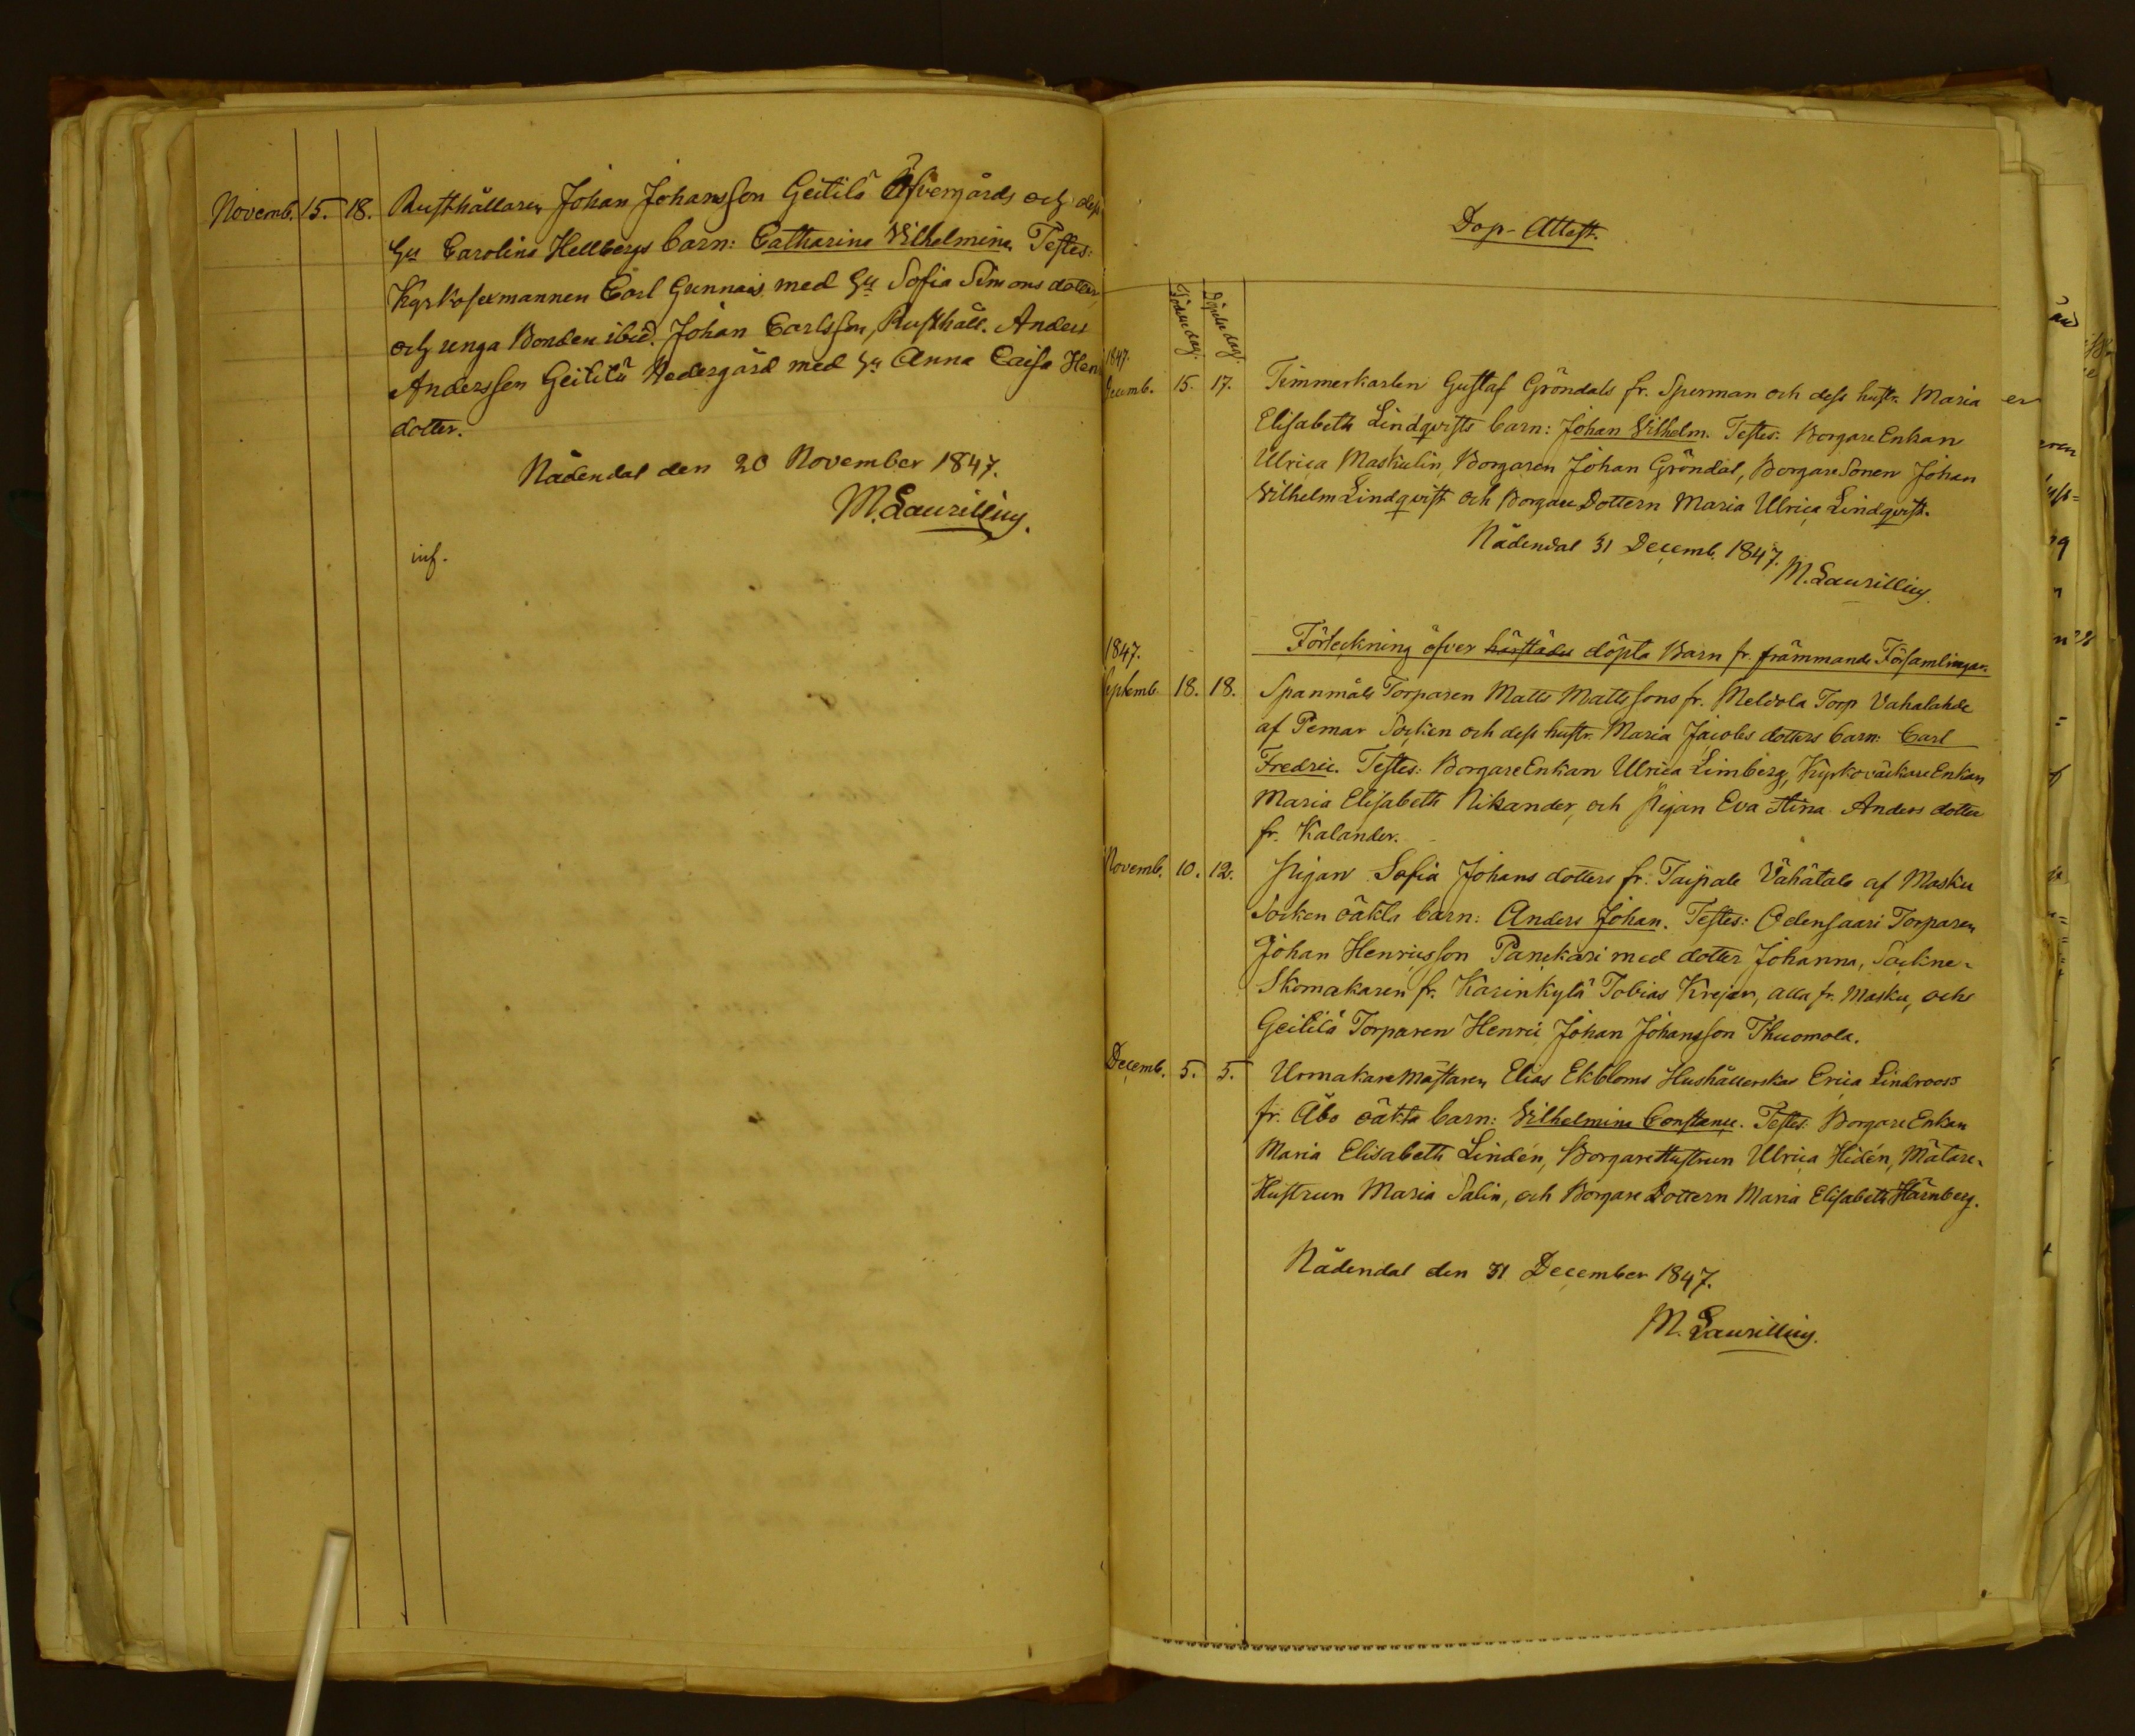 Novemb. 15. 18. Rusthållaren Johan Johansson Geitilä Öfvergårds och dess
hu Carolina Hellbergs barn: Catharina Vilhelmina Testes:
Kyrkosexmannen Carl Gunnais med hu Sofia Simons dotter,
och unga Bonden ibid. Johan Carlsson, Rusthåll. Anders
Andersson Geitilä Nedergård med hu Anna Caisa Hen
dotter.
Nådendal den 20 November 1847.
M. Laurillius.
inf.
Dop-Attest.
Födelsedag. Döpelsedag.
1847.
Decemb. 15. 17. Timmerkarlen Gustaf Gröndals fr. Spurman och dess hustr. Maria
Elisabeth Lindqvists barn: Johan Vilhelm. Testes: BorgareEnkan
Ulrica Maskulin, Borgaren Johan Gröndal, BorgareSonen Johan
Vilhelm Lindqvist och BorgareDottern Maria Ulrica Lindqvist.
Nådendal 31 Decemb. 1847.
M. Laurillius.
1847. Förteckning öfver härstädes döpta Barn fr. främmande Församlingar.
Septemb. 18. 18. Spanmåls Torparen Matts Mattssons fr. Meldola Torp Vahalahde
af Pemar Socken och dess hustr. Maria Jacobs dotters barn: Carl
Fredric. Testes: BorgareEnkan Ulrica Limberg, KyrkoväktareEnkan
Maria Elisabeth Nikander, och Pigan Eva Stina Anders dotter
fr. Kalander.
Novemb. 10. 12. Pigan Sofia Johans dotters fr. Taipale Vähätalo af Masku
Socken oäkta barn: Anders Johan. Testes: Odensaari Torparen
Johan Henricsson Panekari med dotter Johanna, Sockne-
Skomakaren fr. Karinkylä Tobias Krejar, alla fr. Masku, och
Geitilä Torparen Henric Johan Johansson Thuomola.
Decemb. 5. 5. UrmakareMästaren Elias Ekbloms Hushållerskas Erica Lindrooss
fr. Åbo oäkta barn: Vilhelmina Constance. Testes: BorgareEnkan
Maria Elisabeth Lindén, BorgareHustrun Ulrica Hidén, Mätare-
Hustrun Maria Salin, och Borgare Dottern Maria Elisabeth Härnberg.
Nådendal den 31 December 1847.
M. Laurillius.